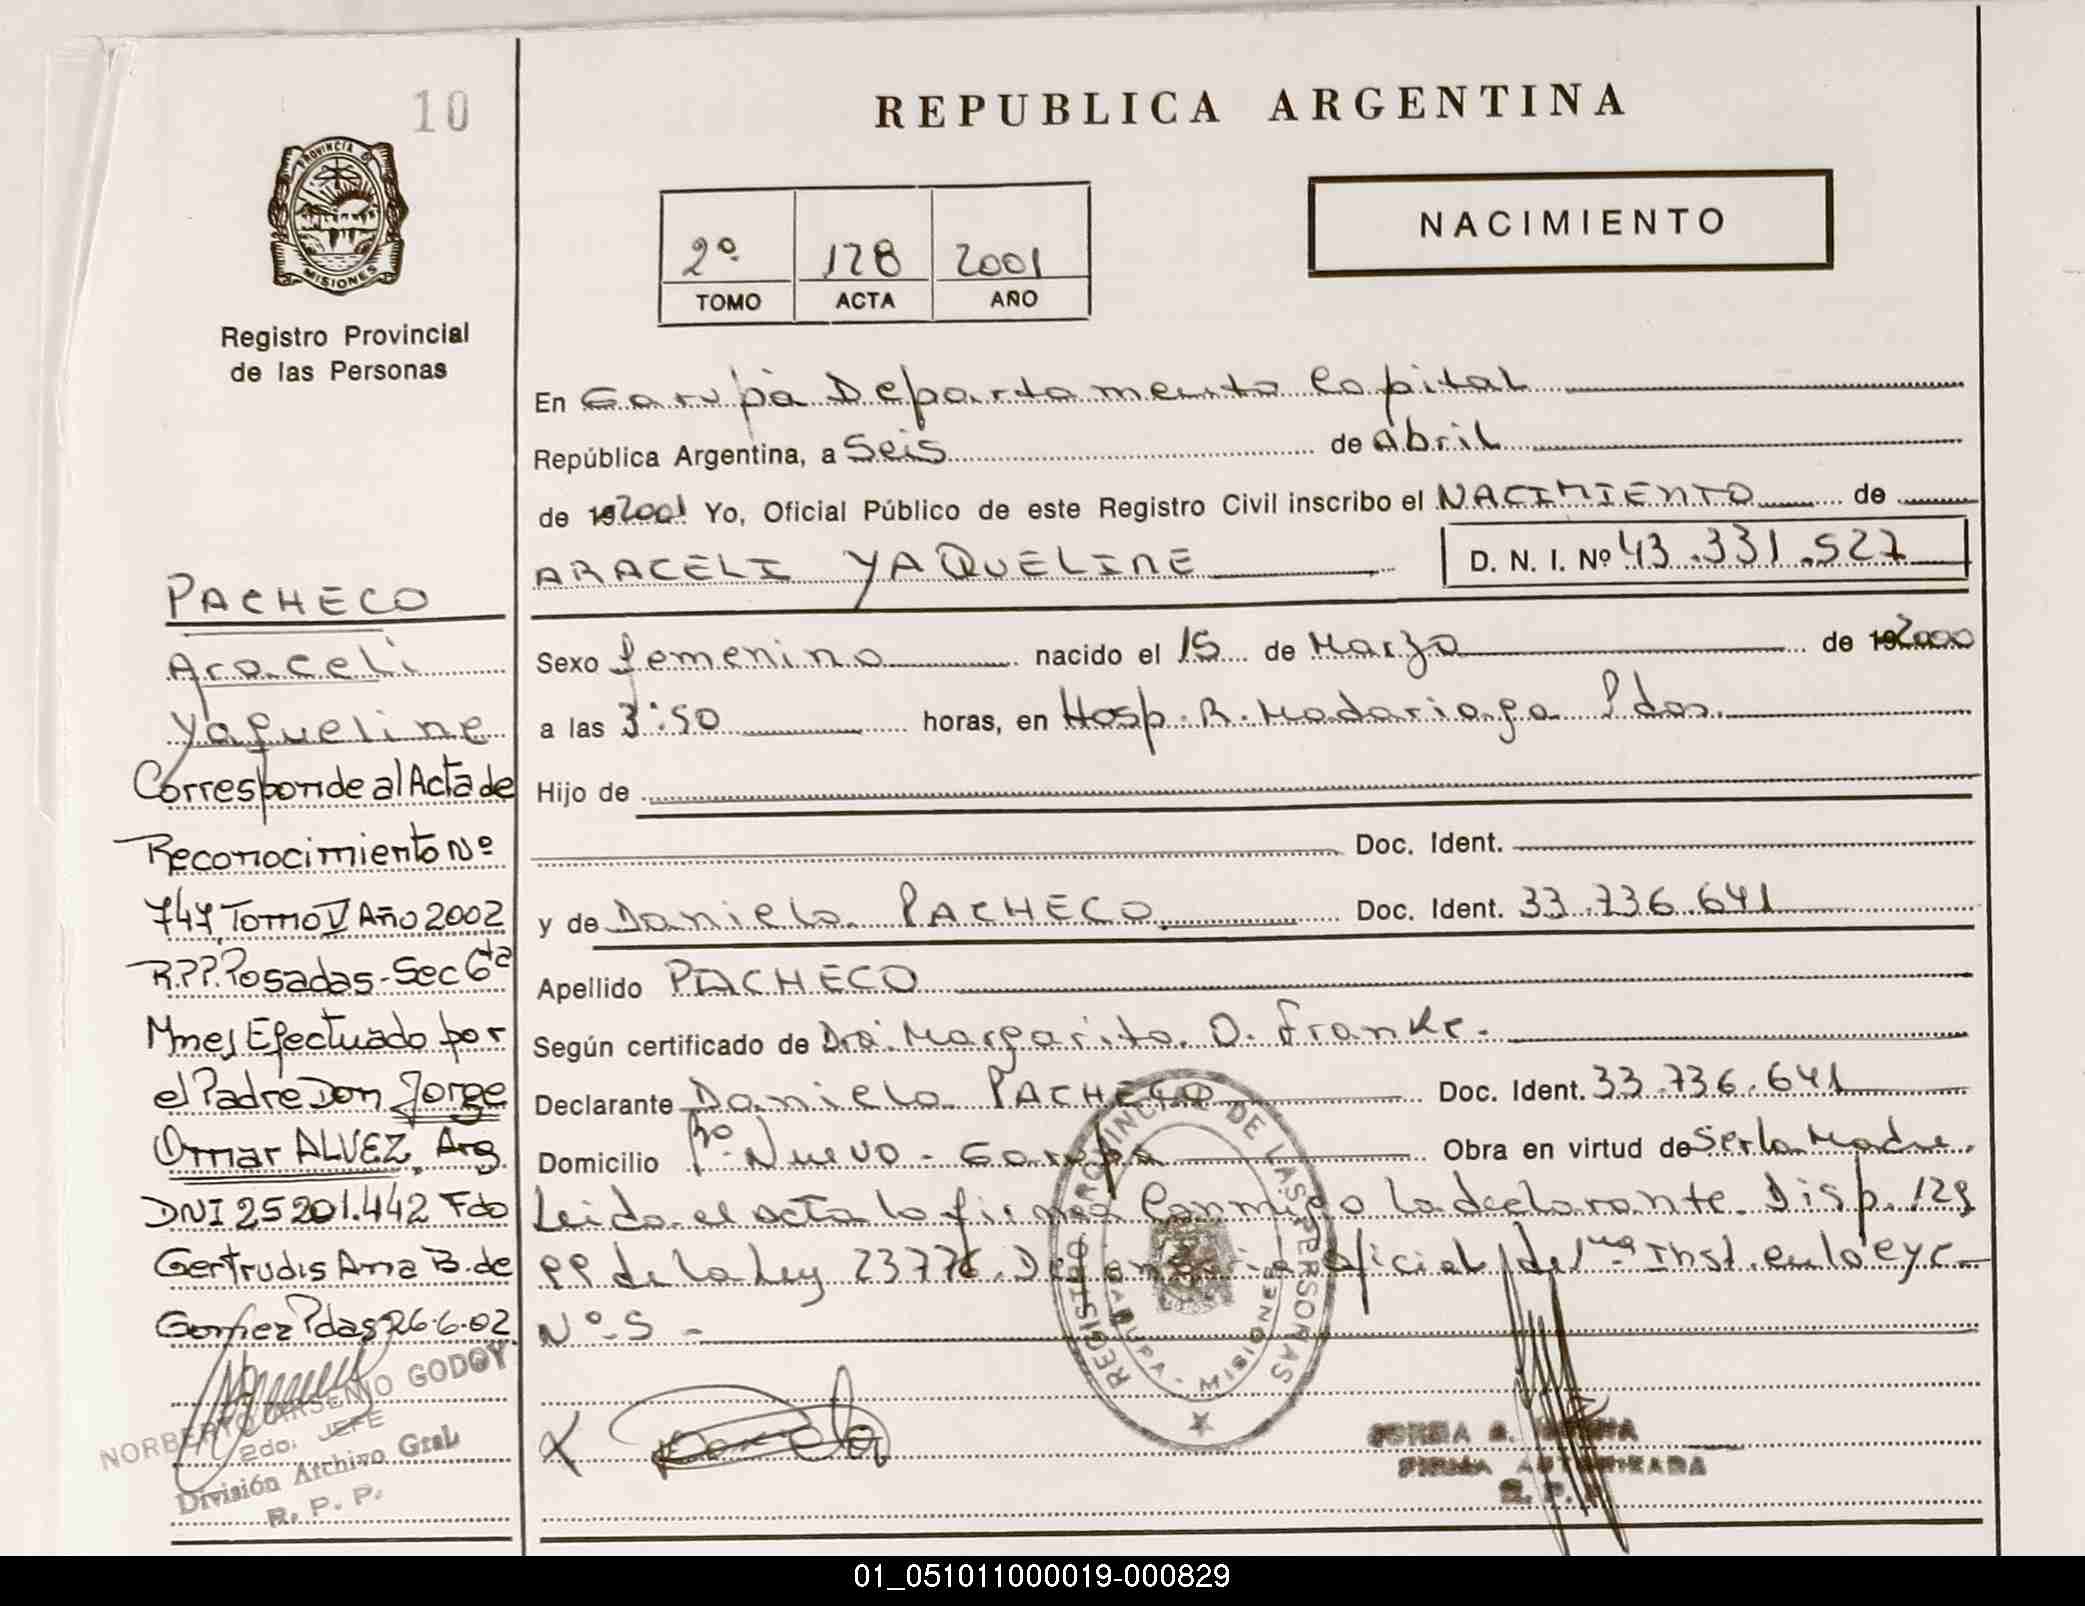 10
PROVINCIA D
MISIONES
Registro Provincial
de las Personas
REPUBLICA ARGENTINA
2º 128 2001
TOMO ACTA AÑO
NACIMIENTO
En Garupà Departamento Capital
República Argentina, a Seis de abril
de 19 2001 Yo, Oficial Público de este Registro Civil inscribo el NACIMIENTO de
ARACELI YAQUELINE
D. N. I. Nº 43.331.527
Sexo femenino nacido el 15 de Marzo de 19 2000
a las 3:50 horas, en Hosp. R. Madariaga Pdas.
Hijo de
Doc. Ident.
y de Daniela PACHECO Doc. Ident. 33.736.641
Apellido PACHECO
Según certificado de Dra. Margarita O. Franke.
Declarante Daniela PACHECO Doc. Ident. 33.736.641
Domicilio Bº Nuevo - Garupa Obra en virtud de Ser la Madre.
Leida el acta la firma Conmigo la declarante. Disp. 128
PP de la Ley 23776. Defensoria Oficial de 1ra Inst. en lo eyc
Nº 5 -
PACHECO
Araceli
Yaqueline
Corresponde al Acta de
Reconocimiento Nº
747, Tomo V Año 2002
R.P.P. Posadas - Sec 6ta
Mnes Efectuado por
el Padre Don Jorge
Omar ALVEZ, Arg
DNI 25201.442 Fdo
Gertrudis Ana B. de
Pdas 26-6-02
NORBERTO ARSENIO GODOY
2do. JEFE
División Archivo Gral
R. P. P.
REGISTRO PROVINCIAL DE LAS PERSONAS
GARUPA - MISIONES
FIRMA AUTORIZADA
R. P. P.
01_051011000019-000829